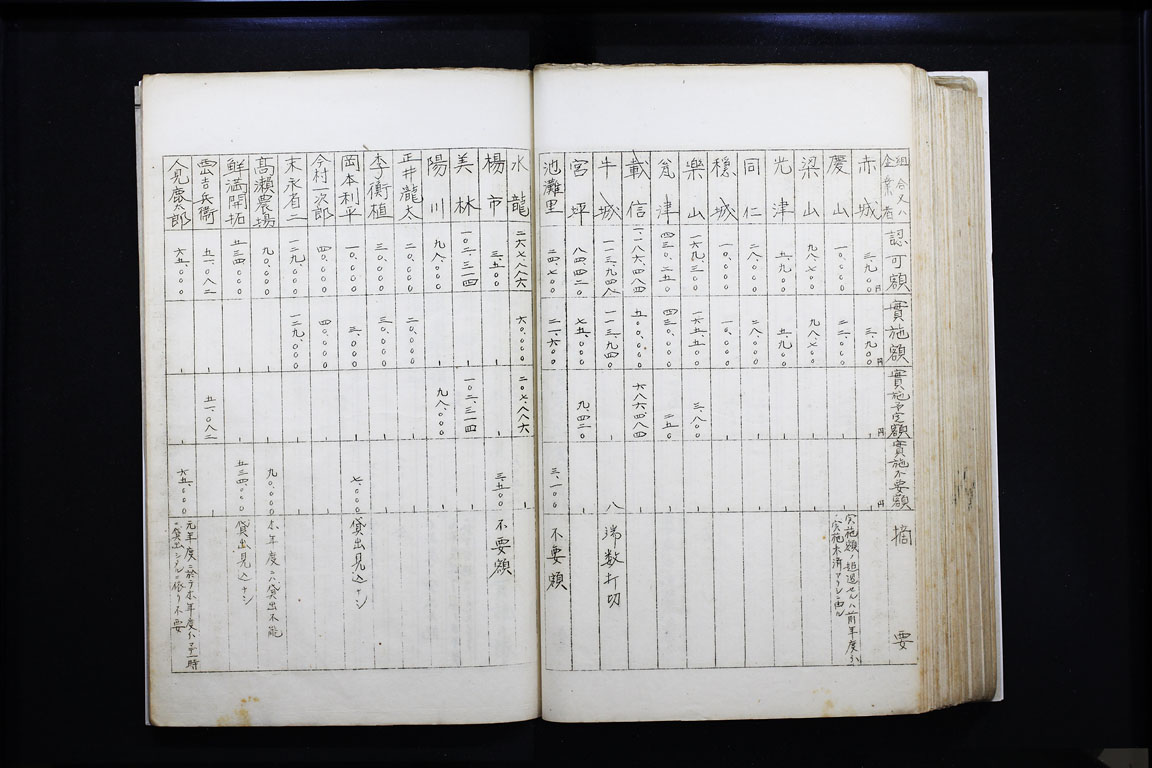 組合又ハ企業者 認可額 實施額 實施予定額 實施不要額 摘要
赤城 三,九〇〇円 三,九〇〇円 円 円
慶山 一〇,〇〇〇 二二,〇〇〇 実施額ノ超過セルハ前年度分ノ
実施未済アリシニ由ル
梁山 九八,七〇〇 九八,七〇〇
光津 五,九〇〇 五,九〇〇
同仁 二八,〇〇〇 二八,〇〇〇
穏城 一〇,〇〇〇 一〇,〇〇〇
樂山 一六九,三〇〇 一六五,五〇〇 三,八〇〇
瓮津 四三〇,二五〇 四三〇,〇〇〇 二五〇
載信 一,一八六,四八四 五〇〇,〇〇〇 六八六,四八四
牛城 一一三,九四八 一一三,九四〇 八 端数打切
宮坪 八四,四二〇 七五,〇〇〇 九,四二〇
池灘里 二四,七〇〇 二一,六〇〇 三,一〇〇 不要額
水龍 二六七,八八六 六〇,〇〇〇 二〇七,八八六
楊市 三,五〇〇 三,五〇〇 不要額
美林 一〇二,三一四 一〇二,三一四
陽川 九八,〇〇〇 九八,〇〇〇
正井瀧太 二〇,〇〇〇 二〇,〇〇〇
李衡植 三〇,〇〇〇 三〇,〇〇〇
岡本利平 一〇,〇〇〇 三,〇〇〇 七,〇〇〇 貸出見込ナシ
今村一次郎 四〇,〇〇〇 四〇,〇〇〇
末永省二 一二九,〇〇〇 一二九,〇〇〇
高瀬農場 九〇,〇〇〇 九〇,〇〇〇 本年度ニハ貸出不能
鮮満開拓 五三四,〇〇〇 五三四,〇〇〇 貸出見込ナシ
吉兵衛 五一,〇八二 五一,〇八二
人見慶太郎 六五,〇〇〇 六五,〇〇〇 元年度ニ於テ本年度分マデ一時
ニ貸出シタルニ依リ不要